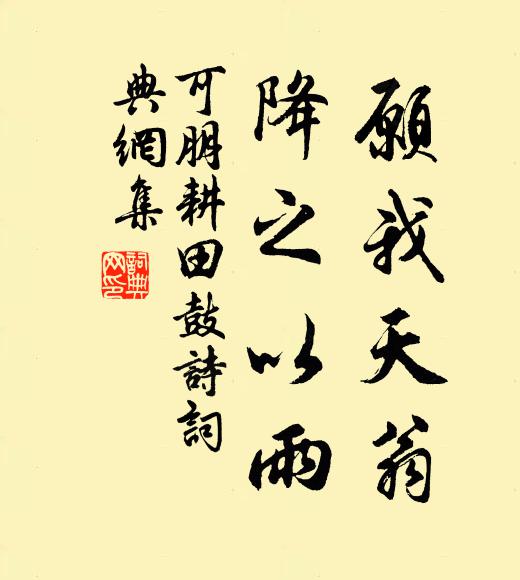 願我天翁
降之以雨
可朋耕田鼓詩詞
典網集
詞典网印